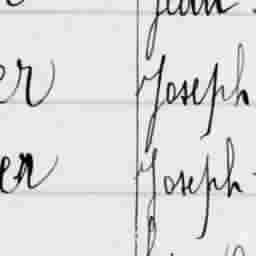 Jean
er Joseph
er Joseph